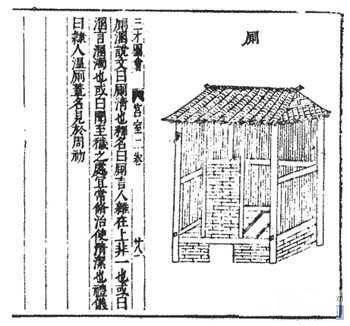 厠
三才圖會 宮室二卷 廿八
厠溷說文曰厠清也釋名曰厠言人雜在上非一也或曰
溷言溷濁也或曰圊至穢之處宜常修治使清潔也禮儀
曰隸人湼厠蓋名見於周初